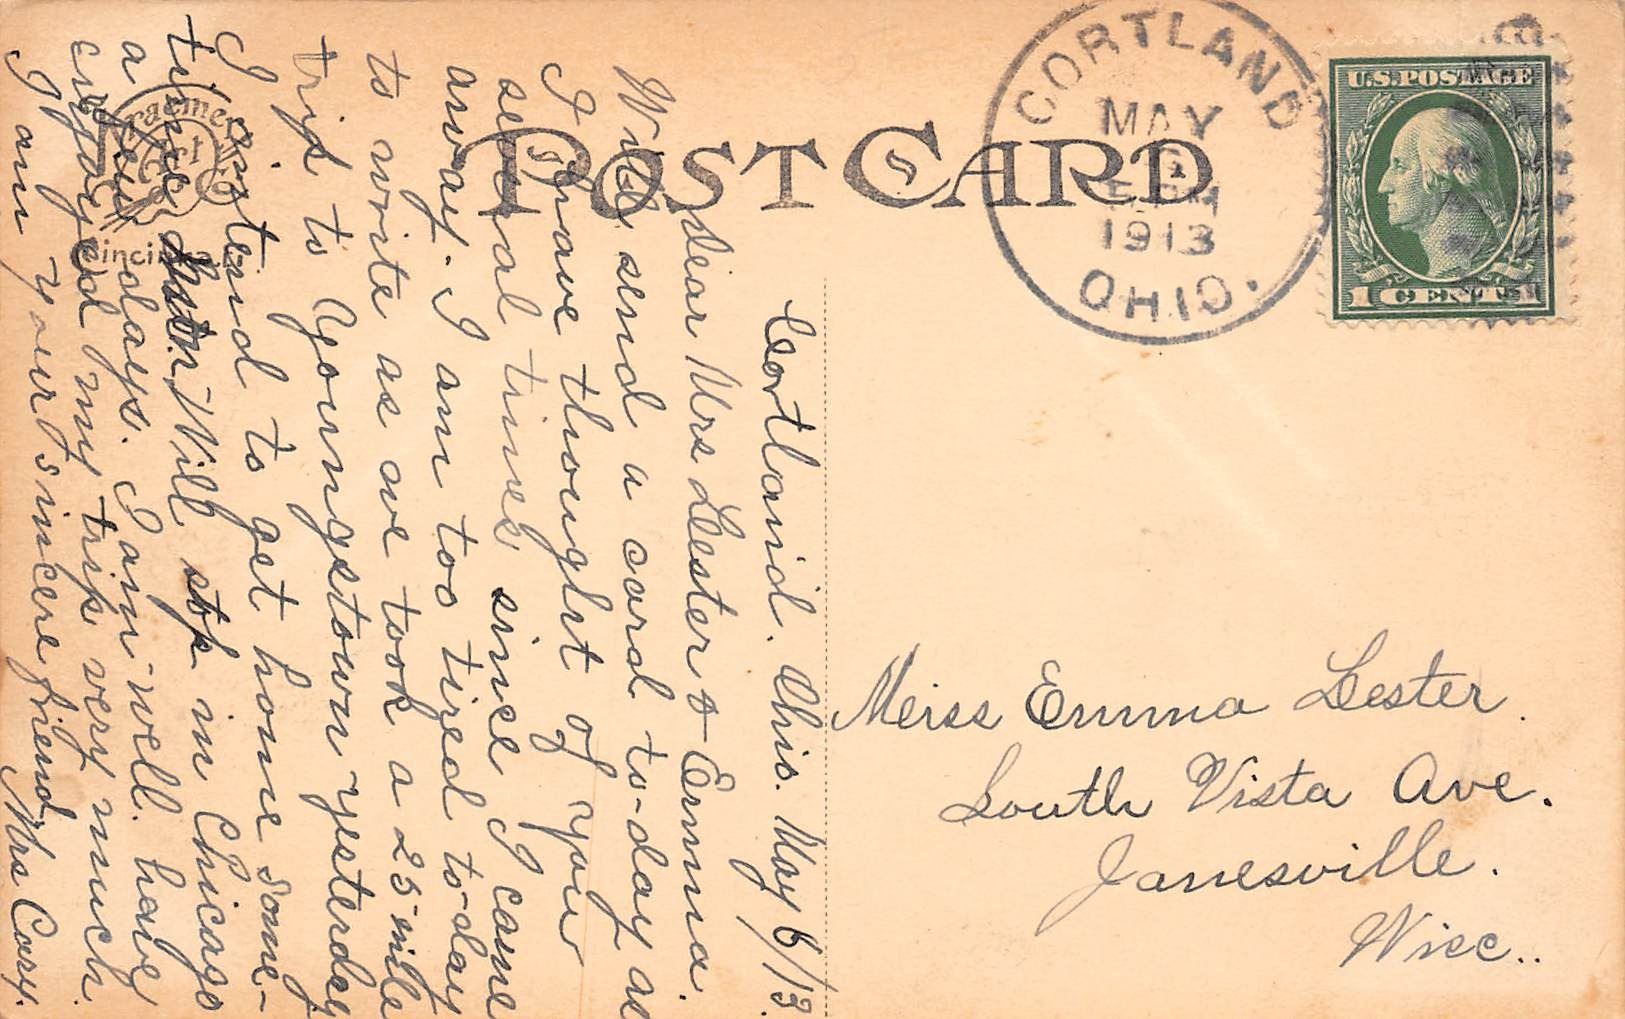 POST CARD
CORTLAND
MAY
6
1913
OHIO.
U.S. POSTAGE
1 CENT 1
Kraemer
Art
Co
Cincinnati
Cortland. Ohio. May 6/13.
Dear Mrs Lester & Emma.
Will send a card to-day as
I have thought of you
several times since I came
away. I am too tired to-day
to write as we took a 25 mile
trip to Youngstown yesterday
I intend to get home some-
time Will stop in Chicago
a few days. I am well. have
enjoyed my trip very much.
I am your sincere friend, Mrs Cary.
Miss Emma Lester.
South Vista Ave.
Janesville.
Wisc..